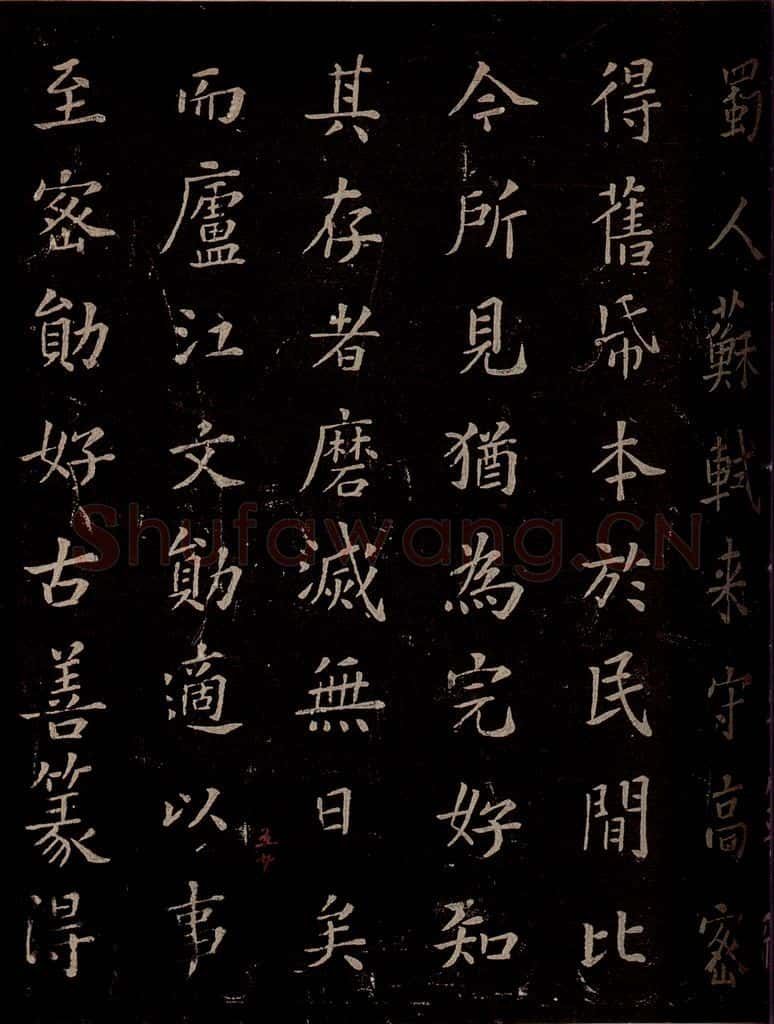 蜀人蘇軾来守高密
得舊帋本於民間比
今所見猶為完好知
其存者磨滅無日矣
而廬江文勛適以事
至密勛好古善篆得
Shufawang.CN